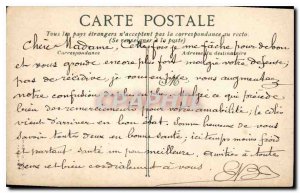 CARTE POSTALE
Tous les pays étrangers n'acceptent pas la correspondance au recto.
(Se renseigner à la poste)
Correspondance Adresse du destinataire
Chère Madame, Cette fois je me fâche pour de bon
et vous gronde encore plus fort malgré votre défense,
pas de récidive, je vous en prie, vous augmentez
notre confusion
bien des remerciements amabilité, le colis
vient d'arriver en bon état. Sommes heureux de vous
savoir tous deux en bonne santé, ici temps moins froid
et partant santé un peu meilleure, amitiés à toutes
deux et bien cordialement à vous